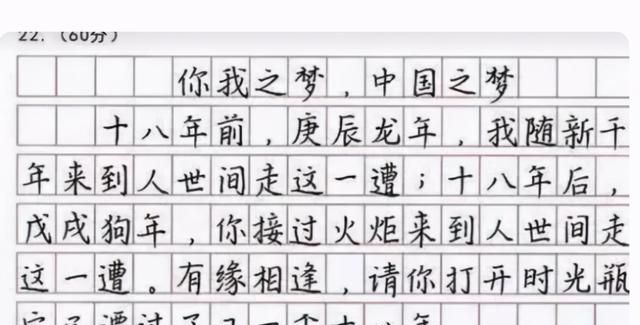 22.（60分）
你我之梦，中国之梦
十八年前，庚辰龙年，我随新千
年来到人世间走这一遭；十八年后，
戊戌狗年，你接过火炬来到人世间走
这一遭。有缘相逢，请你打开时光瓶